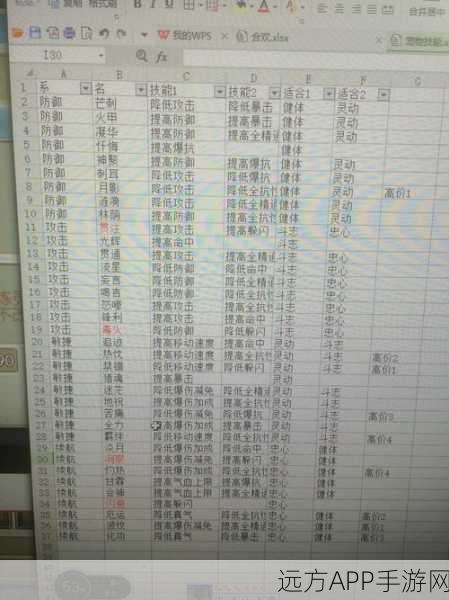 复制
B I U
A
合并居中
我的WPS
合欢.xlsx
宠物技能.x
I30
fx
A B C D E F
1 系 名 技能1 技能2 适合1 适合2
2 防御 芒刺 降低攻击 降低暴击 健体 灵动
3 防御 火甲 提高防御 提高暴击 健体 灵动
4 防御 凝华 提高防御 提高全精 健体 灵动
5 防御 忏悔 提高爆抗 健体
6 防御 提高防御 提高爆抗 健体 灵动
7 防御 刺耳 降低攻击 降低爆抗 健体 灵动
8 防御 月影 降低攻击 降低全抗 健体 灵动 高价1
9 防御 涟漪 降低攻击 降低全精 健体 灵动
10 防御 林荫 提高防御 提高全抗 健体 灵动
11 攻击 贯注 提高攻击 提高躲闪 斗志 忠心
12 攻击 光辉 提高命中 斗志
13 攻击 贯通 提高攻击 提高全精 斗志 忠心
14 攻击 凌星 降低防御 降低命中 斗志 忠心
15 攻击 妄言 降低防御 降低全精 斗志 忠心
16 攻击 降低防御 降低全抗 斗志 忠心
17 攻击 怒嚎 提高攻击 提高全抗 斗志 忠心
18 攻击 锋利 提高攻击 提高命中 斗志 忠心
19 攻击 毒火 降低防御 降低躲闪 斗志 忠心
20 敏捷 追迹 提高移动速度 提高命中 灵动 斗志
21 敏捷 热忱 提高移动速度 提高全抗性 灵动 斗志 高价2
22 敏捷 禁锢 降低移动速度 降低爆抗 灵动 斗志 高价1
23 敏捷 猎魂 提高暴击 灵动
24 敏捷 迷茫 降低爆伤减免 降低全精 灵动 斗志
25 敏捷 地祝 提高爆伤加成 提高全精 灵动 斗志
26 敏捷 苦痛 降低爆伤减免 降低全抗 灵动 斗志 高价3
27 敏捷 全力 提高爆伤加成 提高暴击 灵动 斗志
28 敏捷 羁绊 降低移动速度 降低全抗 灵动 斗志 高价4
29 续航 降低爆伤加成 降低命中 忠心 健体
30 续航 提高爆伤减免 提高躲闪 忠心 健体
31 续航 灼热 降低爆伤加成 降低全抗 忠心 健体 高价4
32 续航 甘霖 提高气血上限 提高全抗 忠心 健体
33 续航 提高气血上限 提高全精 忠心 健体
34 续航 提高躲闪 忠心
35 续航 厄运 降低真气 降低全抗 忠心 健体 高价2
36 续航 波纹 提高爆伤减免 提高全精 忠心 健体 高价1
37 续航 化功 降低真气 降低暴击 忠心 健体 高价3
远方APP手游网